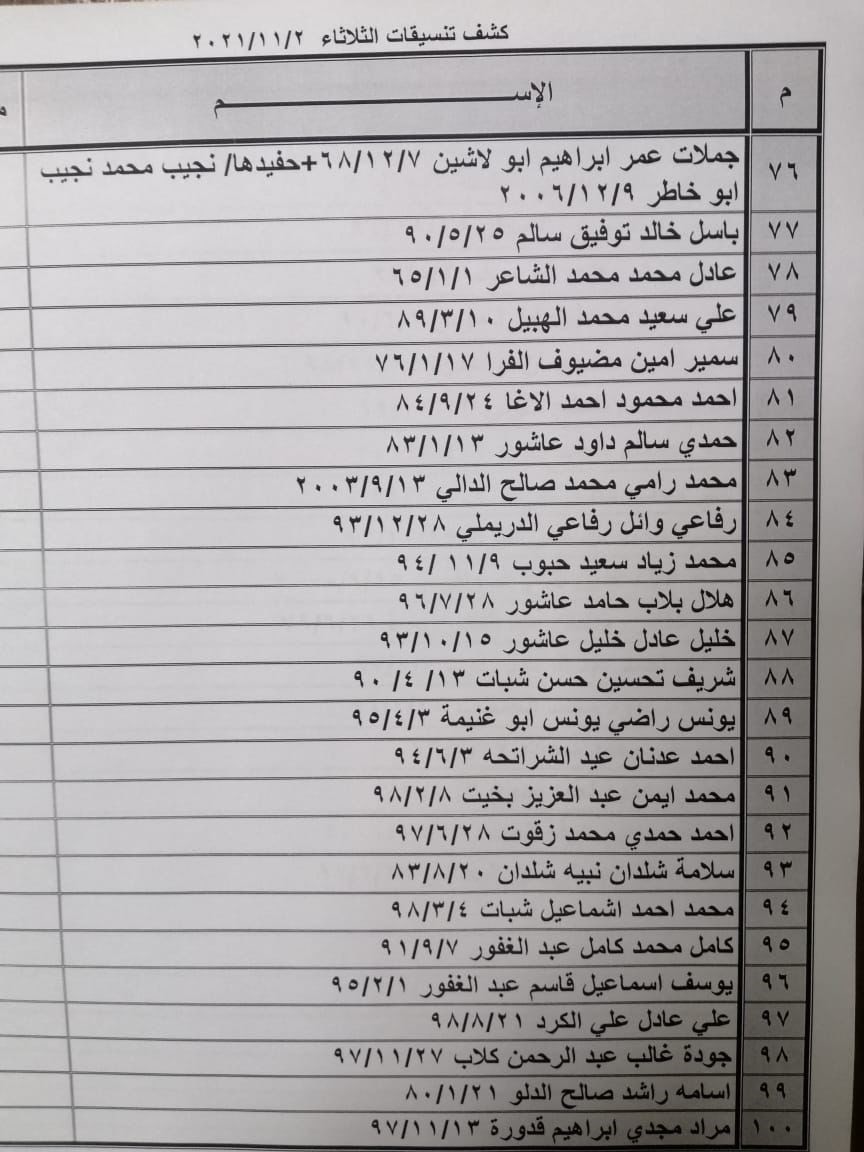 كشف تنسيقات الثلاثاء ٢٠٢١/١١/٢
م الإســـــــــــــــــم
٧٦ جملات عمر ابراهيم ابو لاشين ٦٨/١٢/٧+حفيدها/ نجيب محمد نجيب
ابو خاطر ٢٠٠٦/١٢/٩
٧٧ باسل خالد توفيق سالم ٩٠/٥/٢٥
٧٨ عادل محمد محمد الشاعر ٦٥/١/١
٧٩ علي سعيد محمد الهبيل ٨٩/٣/١٠
٨٠ سمير امين مضيوف الفرا ٧٦/١/١٧
٨١ احمد محمود احمد الاغا ٨٤/٩/٢٤
٨٢ حمدي سالم داود عاشور ٨٣/١/١٣
٨٣ محمد رامي محمد صالح الدالي ٢٠٠٣/٩/١٣
٨٤ رفاعي وائل رفاعي الدريملي ٩٣/١٢/٢٨
٨٥ محمد زياد سعيد حبوب ٩٤/ ١١/٩
٨٦ هلال بلاب حامد عاشور ٩٦/٧/٢٨
٨٧ خليل عادل خليل عاشور ٩٣/١٠/١٥
٨٨ شريف تحسين حسن شبات ٩٠ /٤ /١٣
٨٩ يونس راضي يونس ابو غنيمة ٩٥/٤/٣
٩٠ احمد عدنان عيد الشراتحه ٩٤/٦/٣
٩١ محمد ايمن عبد العزيز بخيت ٩٨/٢/٨
٩٢ احمد حمدي محمد زقوت ٩٧/٦/٢٨
٩٣ سلامة شلدان نبيه شلدان ٨٣/٨/٢٠
٩٤ محمد احمد اشماعيل شبات ٩٨/٣/٤
٩٥ كامل محمد كامل عبد الغفور ٩١/٩/٧
٩٦ يوسف اسماعيل قاسم عبد الغفور ٩٥/٢/١
٩٧ علي عادل علي الكرد ٩٨/٨/٢١
٩٨ جودة غالب عبد الرحمن كلاب ٩٧/١١/٢٧
٩٩ اسامه راشد صالح الدلو ٨٠/١/٢١
١٠٠ مراد مجدي ابراهيم قدورة ٩٧/١١/١٣